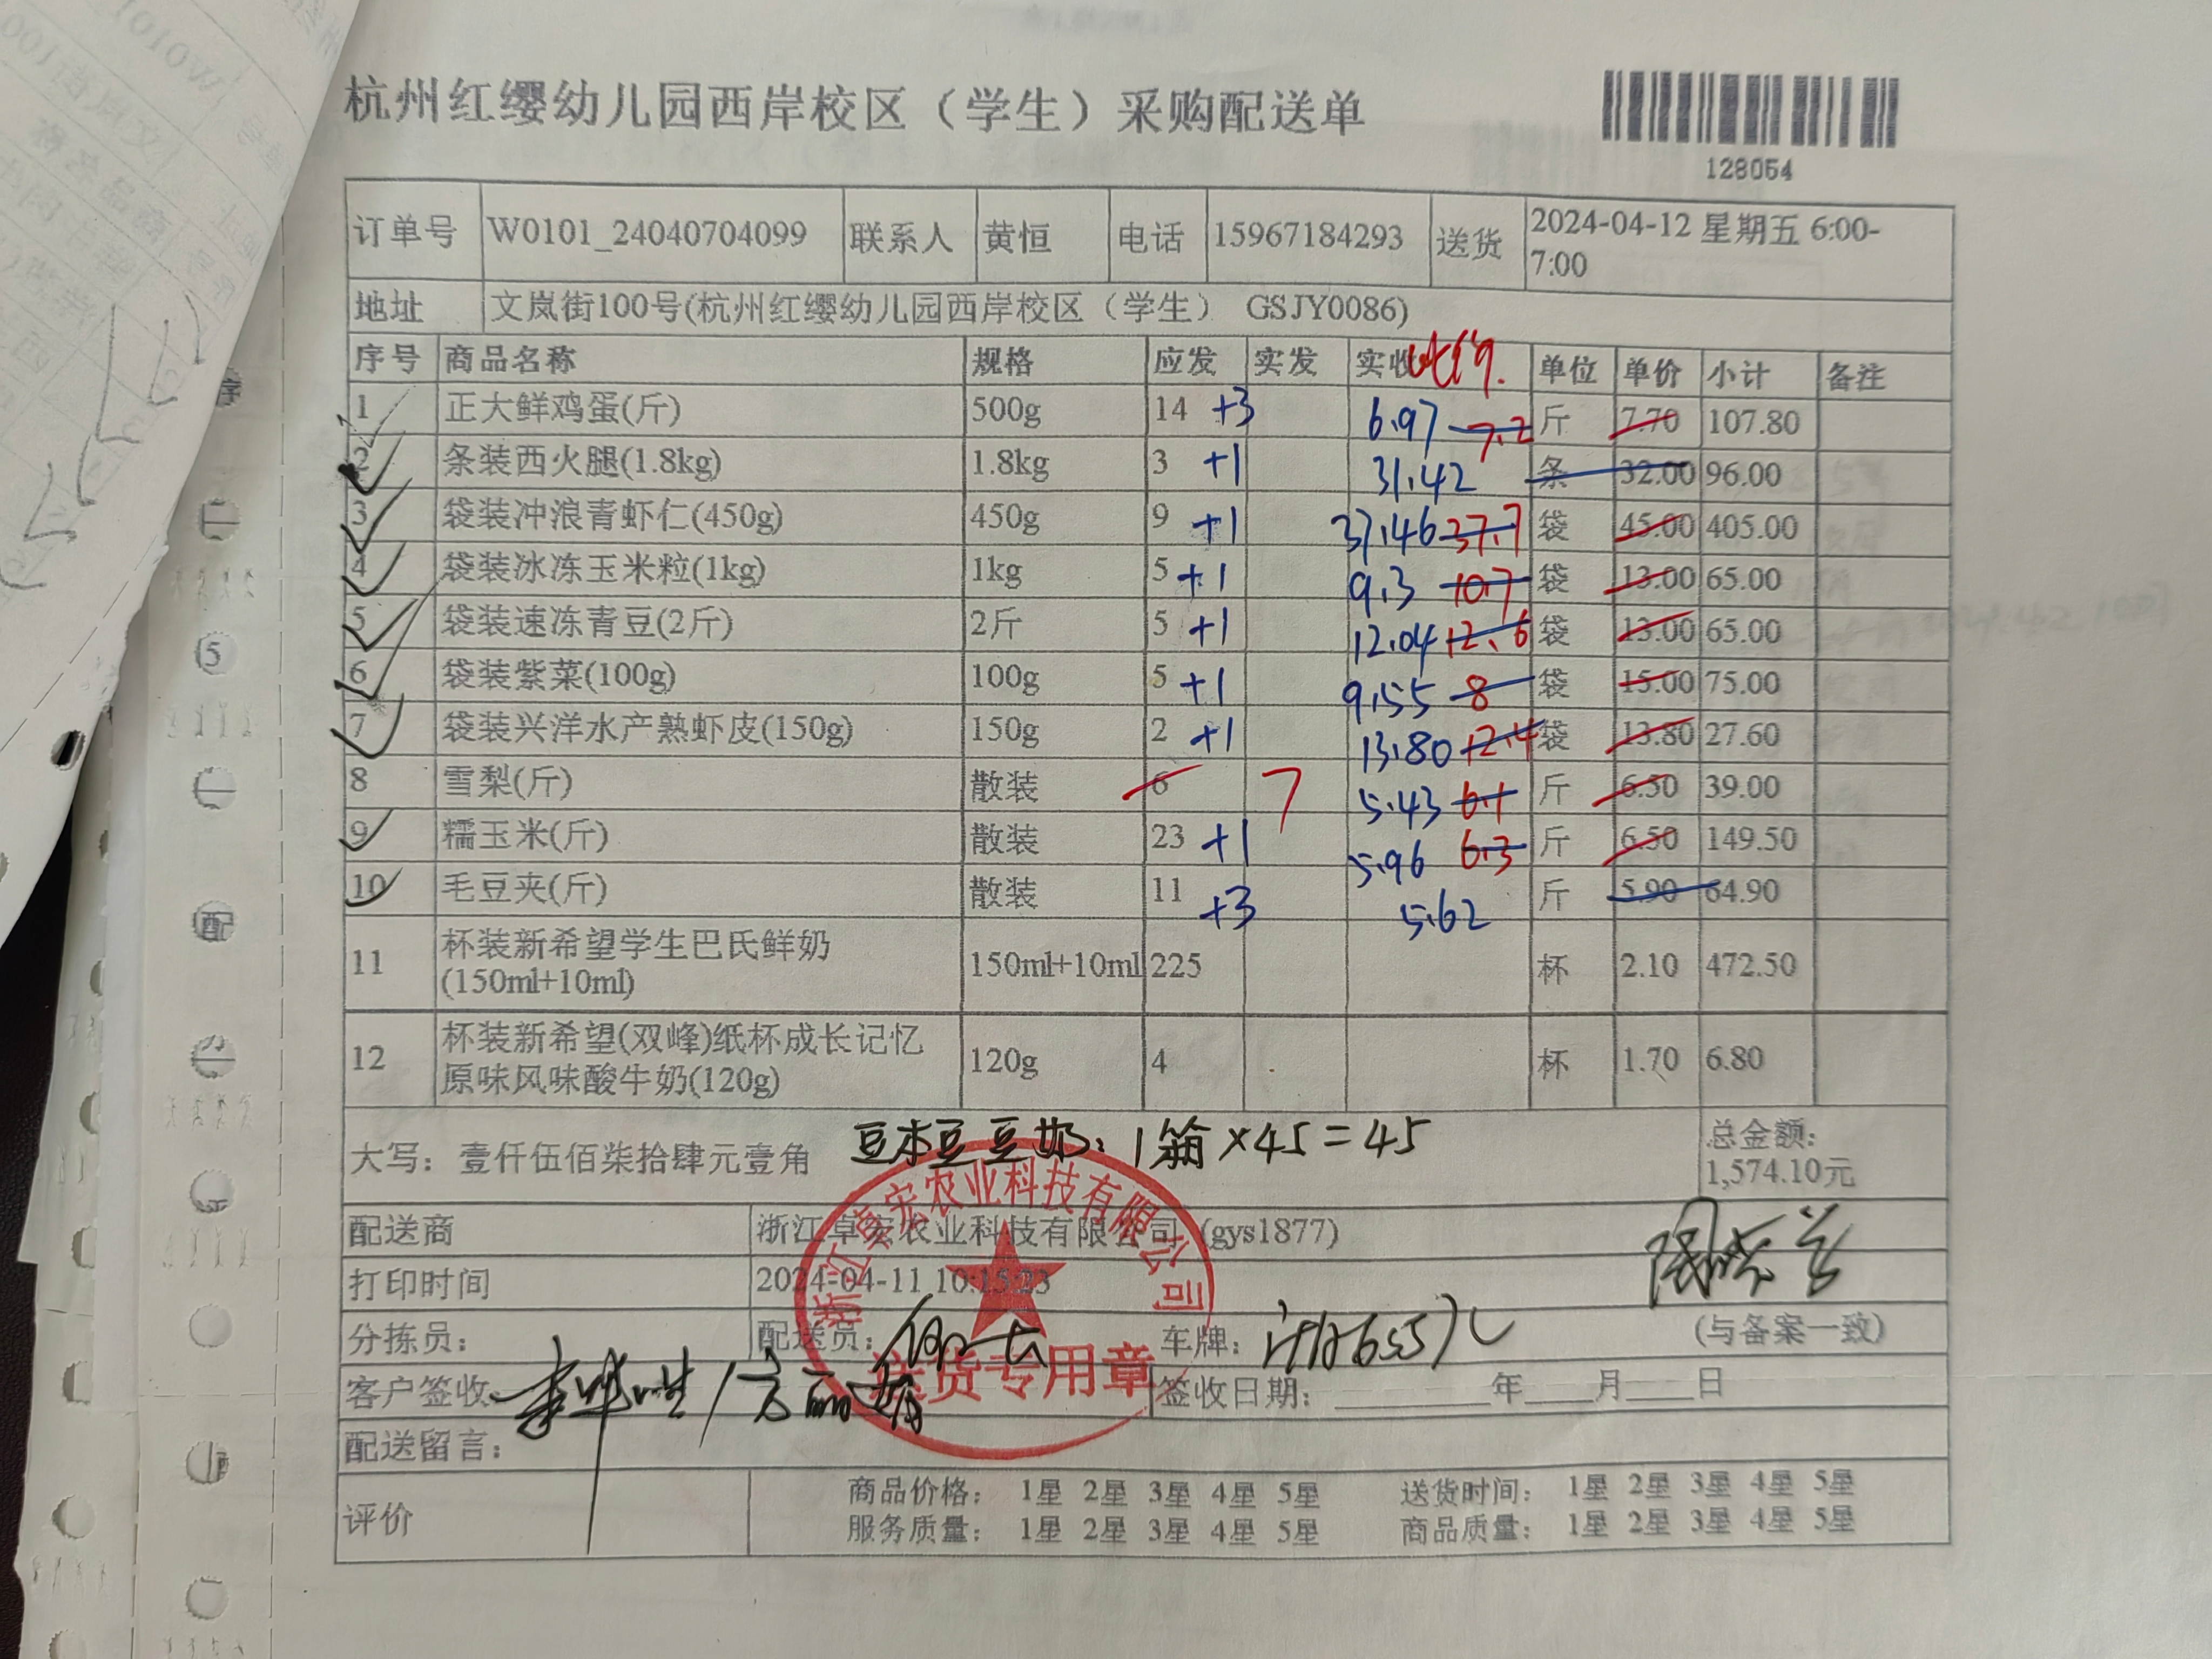 杭州红缨幼儿园西岸校区（学生）采购配送单
128054
订单号 W0101_24040704099 联系人 黄恒 电话 15967184293 送货 2024-04-12 星期五 6:00-
7:00
地址 文岚街100号(杭州红缨幼儿园西岸校区（学生） GSJY0086)
序号 商品名称 规格 应发 实发 实收 单位 单价 小计 备注
1 正大鲜鸡蛋(斤) 500g 14 +3 6.97 7.2 斤 7.70 107.80
2 条装西火腿(1.8kg) 1.8kg 3 +1 31.42 条 32.00 96.00
3 袋装冲浪青虾仁(450g) 450g 9 +1 37.46 37.7 袋 45.00 405.00
4 袋装冰冻玉米粒(1kg) 1kg 5 +1 9.3 10.7 袋 13.00 65.00
5 袋装速冻青豆(2斤) 2斤 5 +1 12.04 12.6 袋 13.00 65.00
6 袋装紫菜(100g) 100g 5 +1 9.55 8 袋 15.00 75.00
7 袋装兴洋水产熟虾皮(150g) 150g 2 +1 13.80 12.4 袋 13.80 27.60
8 雪梨(斤) 散装 6 7 5.43 6.1 斤 6.50 39.00
9 糯玉米(斤) 散装 23 +1 5.96 6.3 斤 6.50 149.50
10 毛豆夹(斤) 散装 11 +3 5.62 斤 5.90 64.90
11 杯装新希望学生巴氏鲜奶
(150ml+10ml) 150ml+10ml 225 杯 2.10 472.50
12 杯装新希望(双峰)纸杯成长记忆
原味风味酸牛奶(120g) 120g 4 杯 1.70 6.80
豆本豆豆奶：1箱×45=45
大写：壹仟伍佰柒拾肆元壹角 总金额：
1,574.10元
配送商 浙江卓宏农业科技有限公司 (gys1877)
打印时间 2024-04-11 10:15:23
分拣员： 配送员： 车牌： (与备案一致)
客户签收 签收日期：年 月 日
配送留言：
评价 商品价格： 1星 2星 3星 4星 5星 送货时间： 1星 2星 3星 4星 5星
服务质量： 1星 2星 3星 4星 5星 商品质量： 1星 2星 3星 4星 5星
浙江卓宏农业科技有限公司
送货专用章